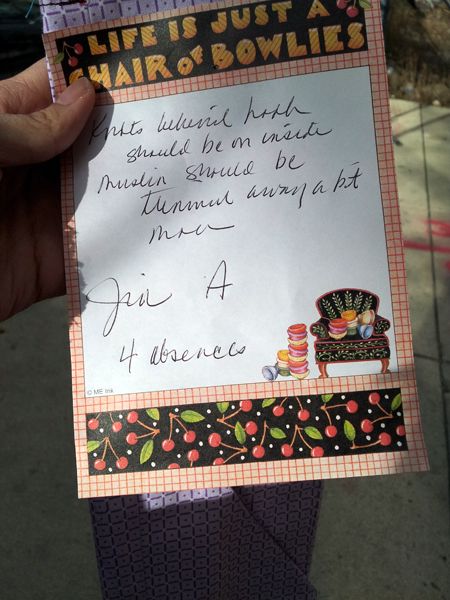 LIFE IS JUST A
CHAIR OF BOWLIES
Knots behind hook
should be on inside
muslin should be
trimmed away a bit
more
Jin A
4 absences
© ME Ink